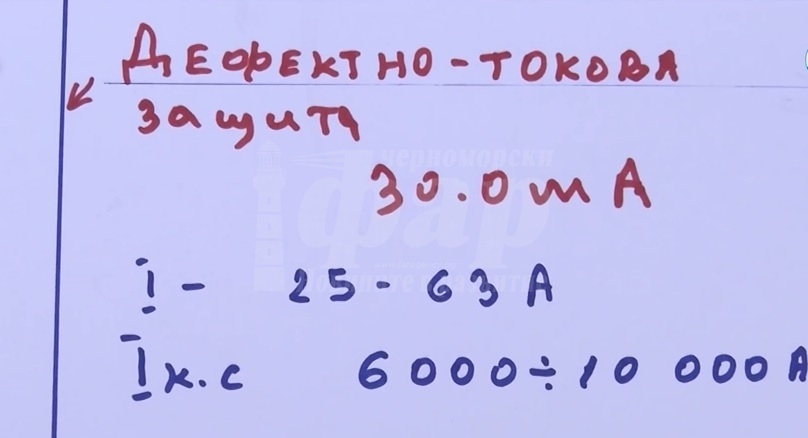 Дефектно-токова
защита
30.0 mA
черноморски
фар
I - 25 - 63 A
I к.с 6000 ÷ 10 000 A